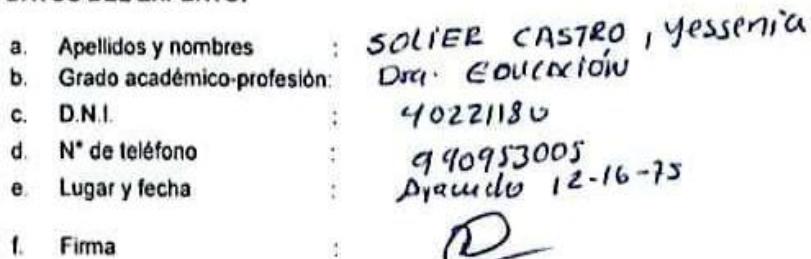 a. Apellidos y nombres : SOLIER CASTRO, Yessenia
b. Grado académico-profesión: Dra. EDUCACIÓN
c. D.N.I. : 40221180
d. N° de teléfono : 990953005
e. Lugar y fecha : 12-16-75
f. Firma :